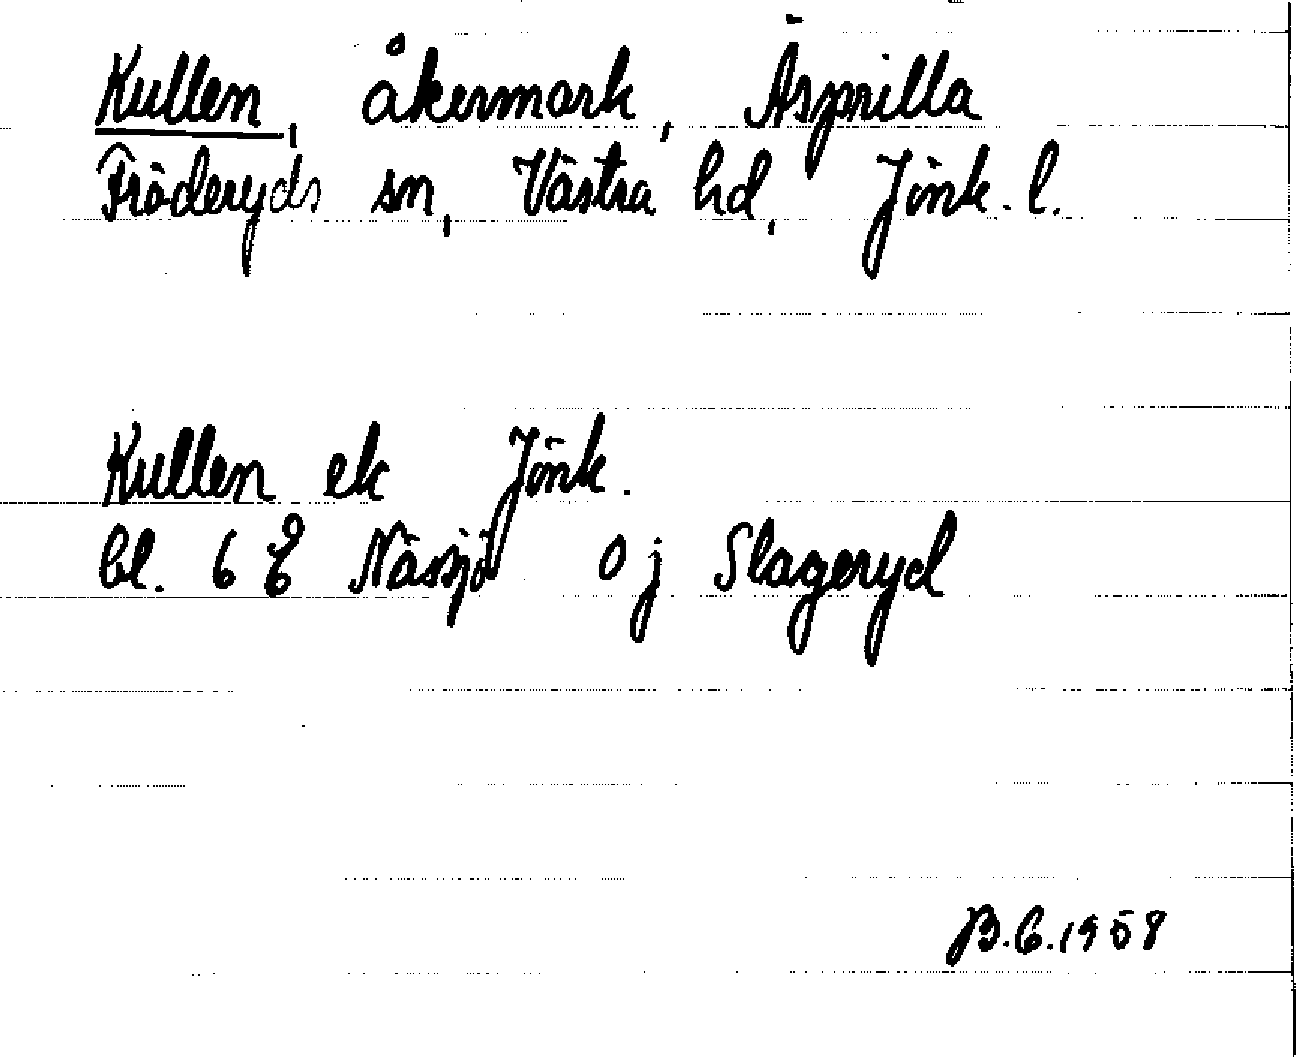 Kullen, åkermark, Äsprilla
Fröderyds sn, Västra hd, Jönk. l.
Kullen ek Jönk.
bl. 6 E Nässjö 0 j Slageryd
B.C. 1958